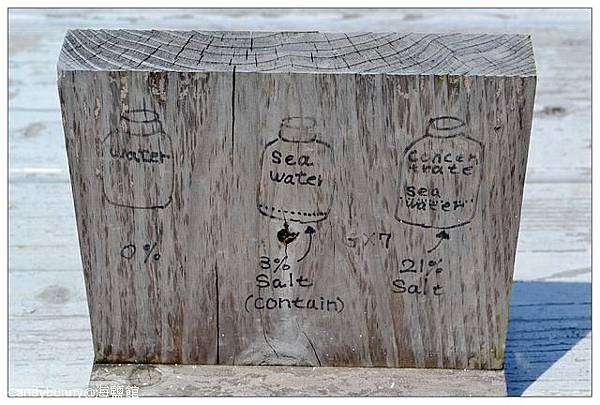 water
0%
Sea
water
3%
Salt
(contain)
5×7
concen
trate
sea
water
21%
Salt
candybunny@海鹽館